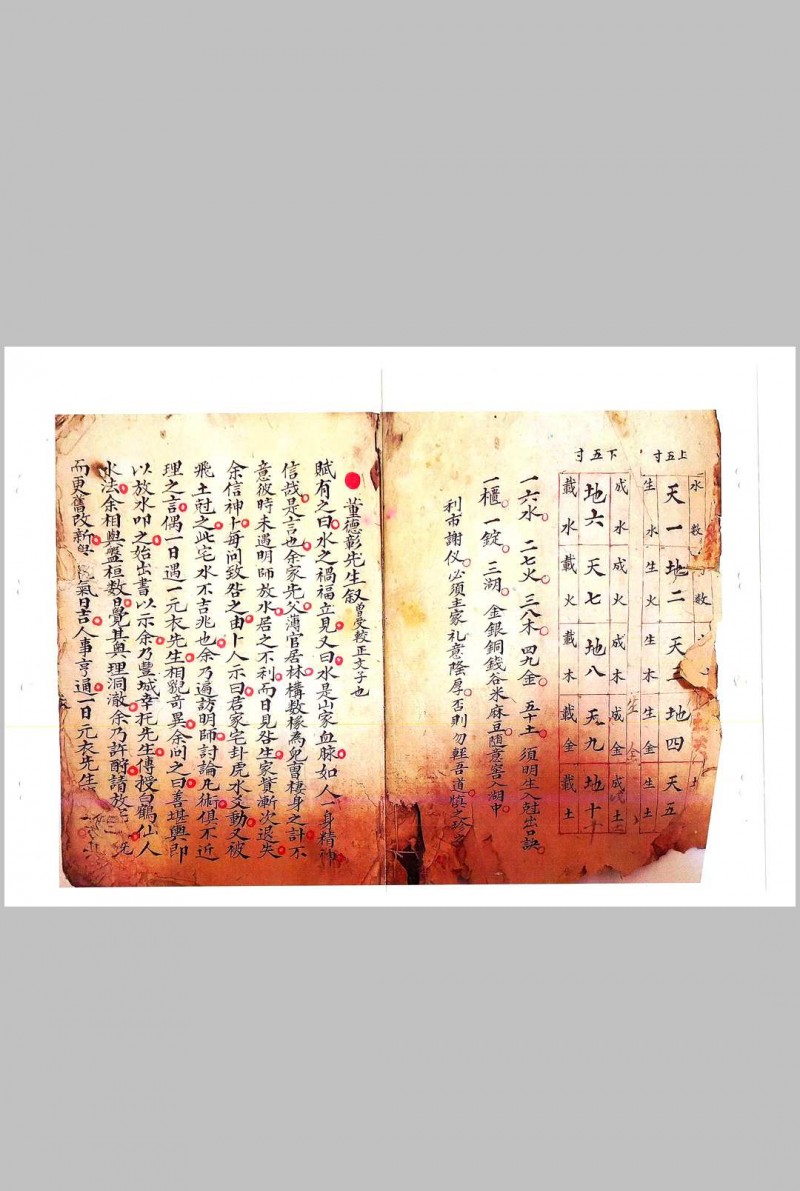 上五寸
水数 数 土
天一 地二 天三 地四 天五
生水 生火 生木 生金 生土
下五寸
成水 成火 成木 成金 成土
地六 天七 地八 天九 地十
載水 載火 載木 載金 載土
一六水 二七火 三八木 四九金 五十土 須明生入尅出口訣
一櫃 一錠 三湖 金銀銅錢谷米麻豆随意窖入湖中
利市謝仪必須主家礼意隆厚否則勿輕吾道慎之珍之
董德彰先生叙 曾受較正文子也
賦有之曰水之禍福立見又曰水是山家血脉如人一身精神
信哉是言也余家先父薄官居林構数椽為兒曹棲身之計不
意彼時未遇明師放水居之不利而日見咎生家貲漸次退失
余信神卜每问致咎之由卜人示曰君家宅卦虎水爻動又被
飛土尅之此宅水不吉兆也余乃遍訪明師討論凡術俱不近
理之言偶一日遇一元衣先生相貌奇異余问之曰善堪輿即
以放水叩之始出書以示余乃豐城幸托先生傳授白鶴仙人
水法余相與盤桓数日覺其奥理洞澈余乃許酧請放
而更舊改新 氣日吉人事亨通一日元衣先生